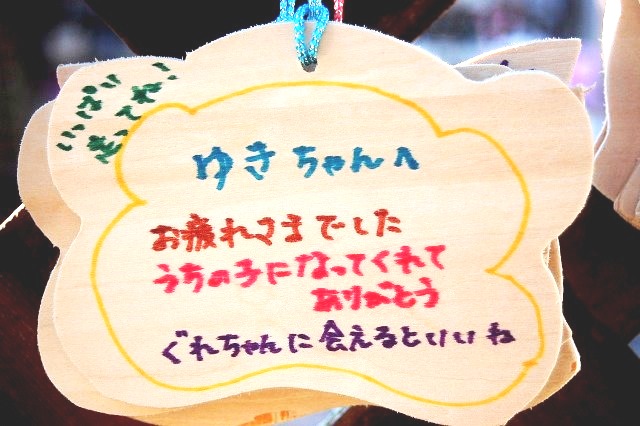 いっぱい
走ってね!
ゆきちゃんへ
お疲れさまでした
うちの子になってくれて
ありがとう
ぐれちゃんに会えるといいね